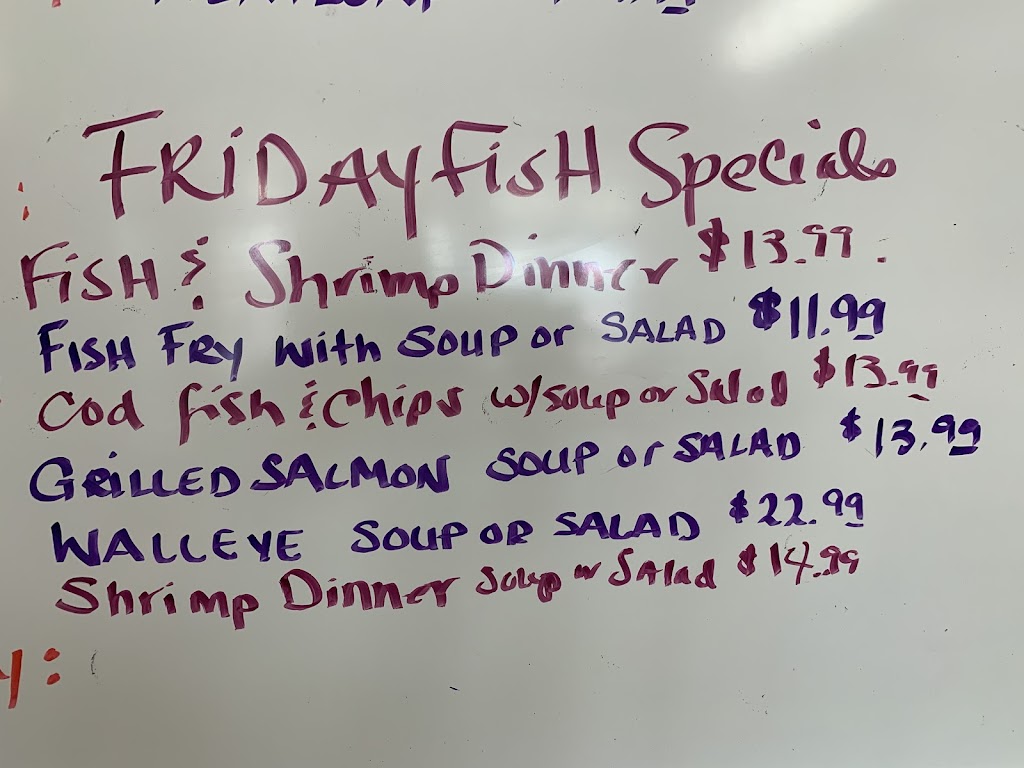 FRIDAY FISH Specials
FISH & Shrimp Dinner $13.99.
FISH FRY with SOUP or SALAD $11.99
Cod fish & Chips w/soup or Salad $13.99
GRILLED SALMON SOUP or SALAD $13.99
WALLEYE SOUP OR SALAD $22.99
Shrimp Dinner Soup or Salad $14.99
y: